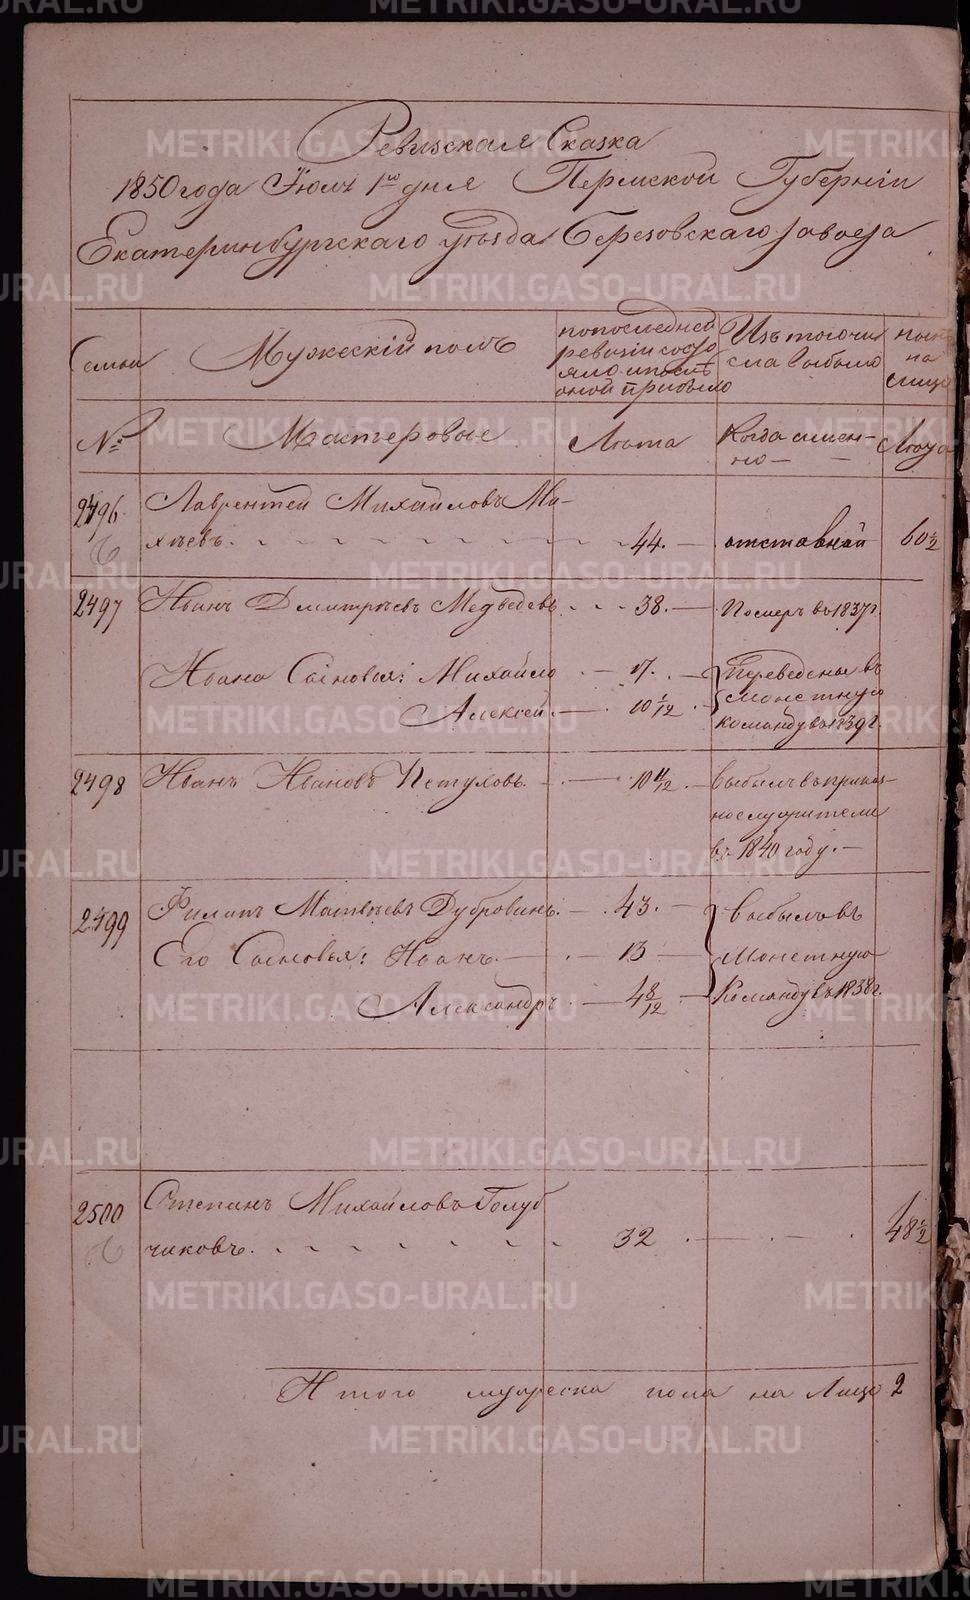 METRIKI.GASO-URAL.RU
Ревизская Сказка
1850 года Іюля 1го дня Пермской Губерніи
Екатеринбургскаго уѣзда Березовскаго завода
Семьи Мужескій полъ по последней ревизіи состояло и после оной прибыло Изъ того числа выбыло ныне на лицо
№ Мастеровые Лѣта Когда именно Лѣта
2496 Лаврентей Михайловъ Михѣевъ. 44. отставной 60½
2497 Иванъ Дмитрѣевъ Медведевъ 38. Померъ въ 1837 г.
Ивана Сыновья: Михайло 17. Переведены въ
Алексей 10 1/12 монетную команду въ 1839 г.
2498 Иванъ Ивановъ Петуховъ 10 11/12 выбылъ въ
въ 1840 году.
2499 Филипъ Матвѣевъ Дубровинъ. 43. выбылъ въ
Его Сыновья: Иванъ. 13 Монетную
Александръ 4 8/12 Команду въ 1838 г.
2500 Степанъ Михайловъ Голуб
чиковъ. 32 48½
Итого мужеска пола на Лицо 2